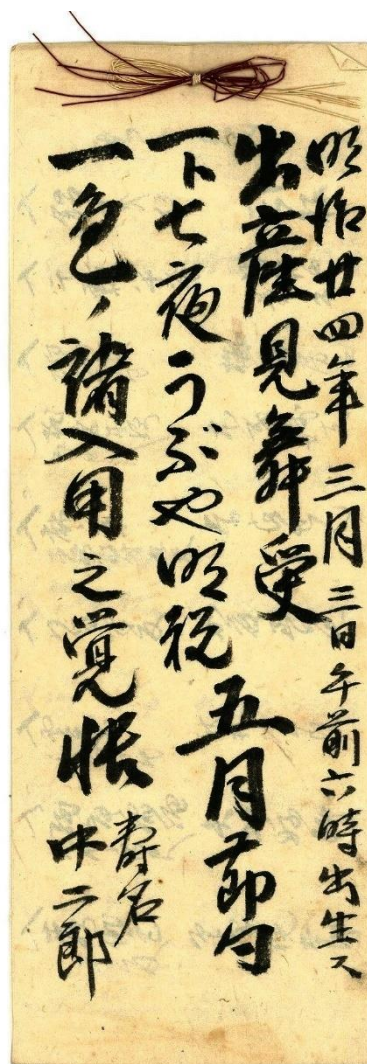 明治廿四年三月三日午前六時出生ス
出産見舞受
一ト七夜うぶや明祝 五月節句
一色ノ諸入用之覚帳
寿名
中二郎